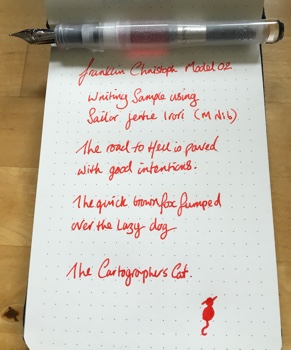 Franklin Christoph Model 02
Writing Sample using
Sailor Jentle Irori (M Nib)
The road to Hell is paved
with good intentions.
The quick brown fox jumped
over the lazy dog
The Cartographers Cat.